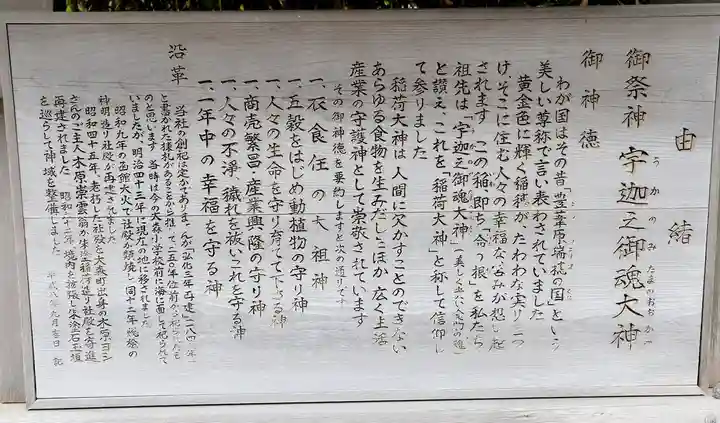 由緒
御祭神 宇迦之御魂大神
うかのみたまのおおかみ
御神徳
わが国はその昔「豊葦原瑞穂の国」という
美しい尊称で言い表わされていました
黄金色に輝く稲穂が、たわわな実りをつ
け、そこに住む人々の幸福な営みが想い起
されます この稲、即ち「命の根」を私たち
祖先は「宇迦之御魂大神」
と讃え、これを「稲荷大神」と称して信仰し
て参りました
稲荷大神は人間に欠かすことのできない
あらゆる食物を生みだし、ほか広く生活
産業の守護神として崇敬されています
その御神徳を要約しますと次の通りです
一、衣食住の大祖神
一、五穀をはじめ動植物の守り神
一、人々の生命を守り育て下さる神
一、商売繁昌・産業興隆の守り神
一、人々の不浄、穢れを祓いこれを守る神
一、一年中の幸福を守る神
沿革
当社の創祀は定かでありませんが「弘化三年再建」一八四 年
と書かれた棟札があることから推して二五〇年位前から祀られたも
のと思います 当時は今の大森小学校前に海に面して祀られて
いましたが、明治四十三年に現在の地に移されました
昭和九年の函館大火で社殿が類焼し同十二年総桧の
神明造り社殿が再建されました
昭和四十五年、老朽した社殿を大森町出身の木原ヨシ
さんのご主人木原崇雲翁が朱塗稲荷造り社殿を寄進
再建されました 昭和六十二年、境内を拡張し朱塗二石玉垣
を巡らして神域を整備しました 平成八年九月吉日 記